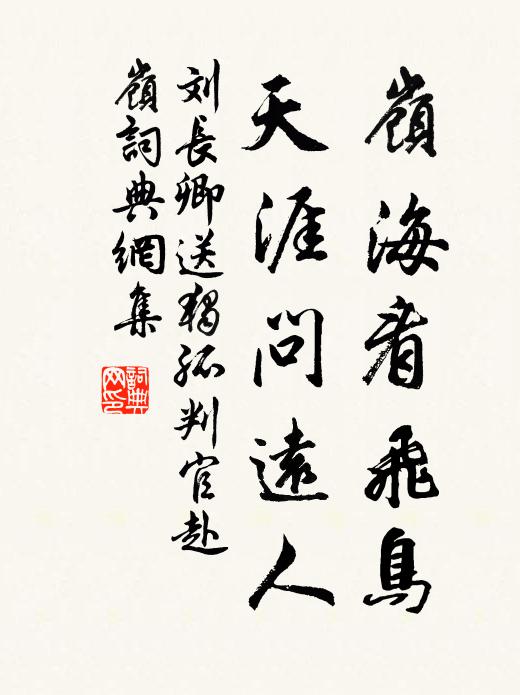 嶺海看飛鳥
天涯問遠人
刘長卿送獨孤判官赴
嶺詞典網集
詞典
网印